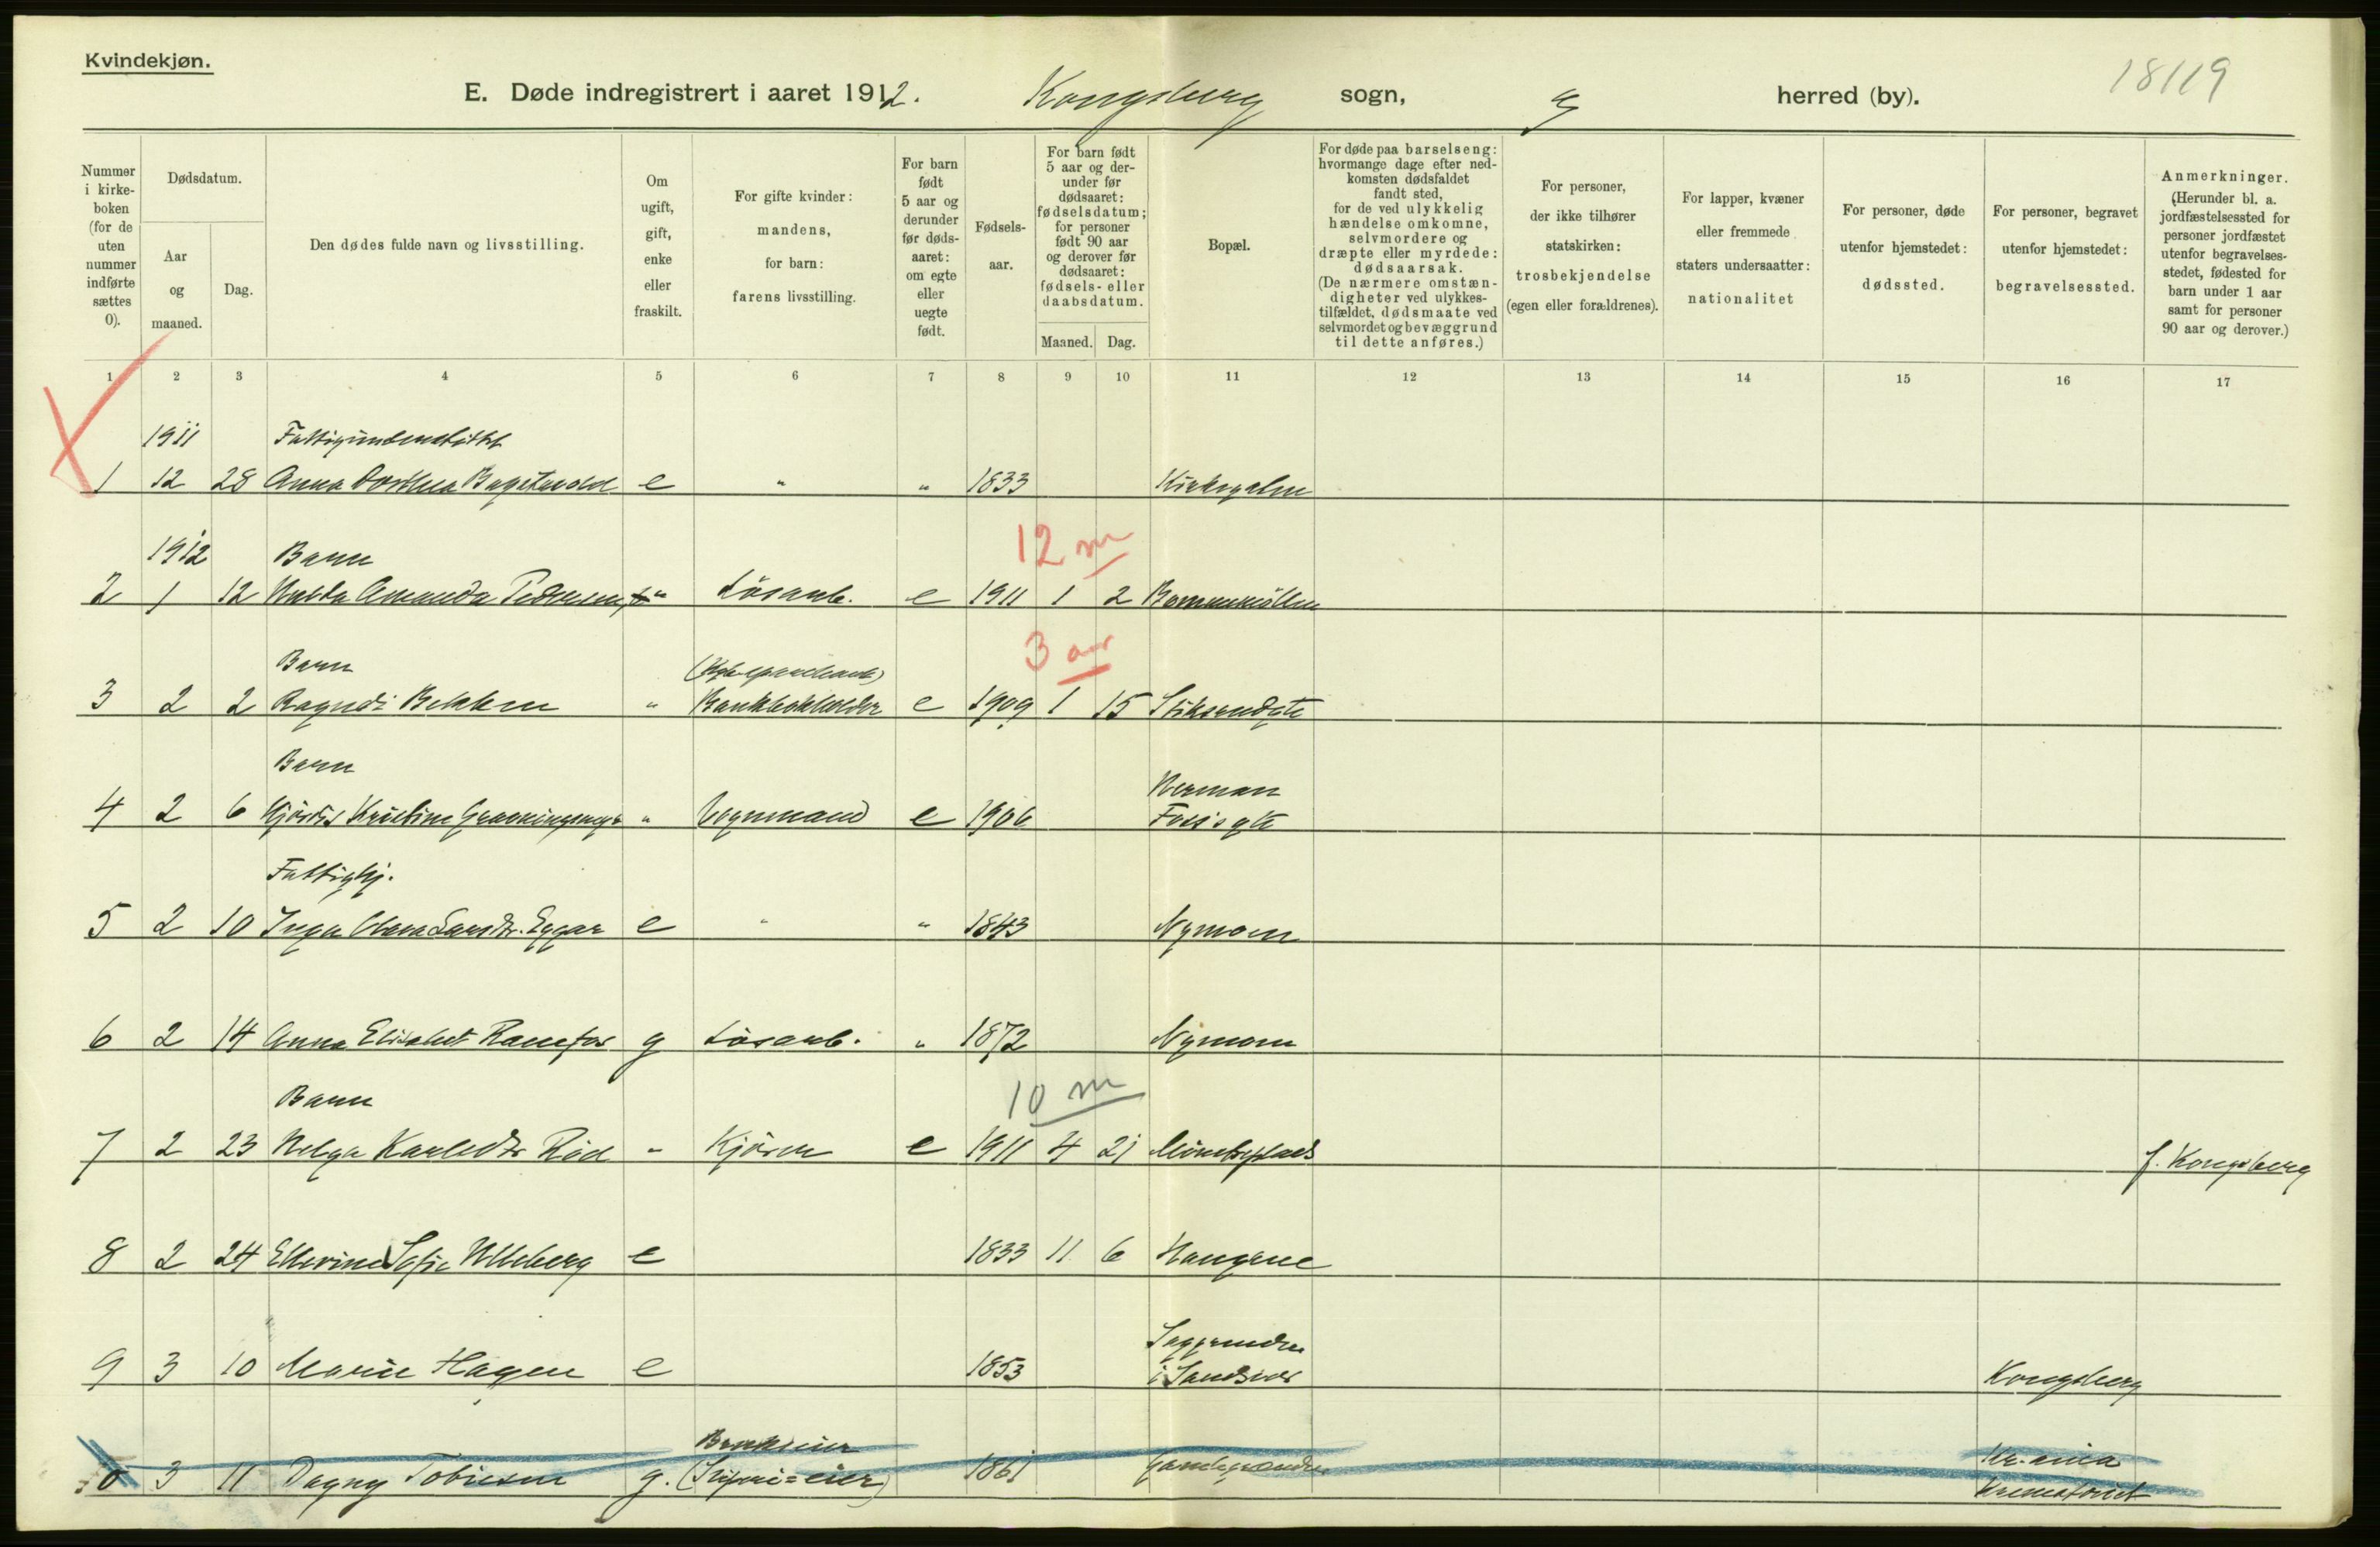 Kvindekjøn.
18119
E. Døde indregistrert i aaret 1912. Kongsberg sogn, herred (by).
Nummer i kirke-boken (for de uten nummer indførte sættes 0).
Dødsdatum.
Aar og maaned.
Dag.
Den dødes fulde navn og livsstilling.
Om ugift, gift, enke eller fraskilt.
For gifte kvinder: mandens, for barn: farens livsstilling.
For barn født 5 aar og derunder før døds-aaret: om egte eller uegte født.
Fødsels-aar.
For barn født 5 aar og der-under før dødsaaret: fødselsdatum; for personer født 90 aar og derover før dødsaaret: fødsels- eller daabsdatum.
Maaned.
Dag.
Bopæl.
For døde paa barselseng: hvormange dage efter ned-komsten dødsfaldet fandt sted, for de ved ulykkelig hændelse omkomne, selvmordere og dræpte eller myrdede: dødsaarsak. (De nærmere omstæn-digheter ved ulykkes-tilfældet, dødsmaate ved selvmordet og bevæggrund til dette anføres.)
For personer, der ikke tilhører statskirken: trosbekjendelse (egen eller forældrenes).
For lapper, kvæner eller fremmede staters undersaatter: nationalitet
For personer, døde utenfor hjemstedet: dødssted.
For personer, begravet utenfor hjemstedet: begravelsessted.
Anmerkninger. (Herunder bl. a. jordfæstelsessted for personer jordfæstet utenfor begravelses-stedet, fødested for barn under 1 aar samt for personer 90 aar og derover.)
1 2 3 4 5 6 7 8 9 10 11 12 13 14 15 16 17
1911 Fattigunderstøttet
1 12 28 Anna Dorthea e " " 1833
12 m
1912 Barn
2 1 12 Hulda Amanda Pedersen " Løsarb. e 1911 1 2 Bommemøllen
3 aar
Barn
3 2 2 Ragndi Bekken " Bankbokholder e 1909 1 15
Barn Herman
4 2 6 Hjørdis Kristine " Vognmand e 1906 Foss's gt.
Fattighj.
5 2 10 Inga Larsdtr. Eggar e " " 1843 Nymoen
6 2 14 Anna Elisabet Ramfos g Løsarb. " 1872 Nymoen
10 m
Barn
7 2 23 Helga Karlsdtr Rød " Kjører e 1911 4 21 Myntensplads f. Kongsberg
8 2 24 Ellevine Sofie Ulleberg e 1833 11 6 Haugene
Saggrenden
9 3 10 Marie Hagen e 1853 i Sandsvær Kongsberg
Brukseier Kr.ania
3 11 Dagny Tobiesen g. 1861 Krematoriet